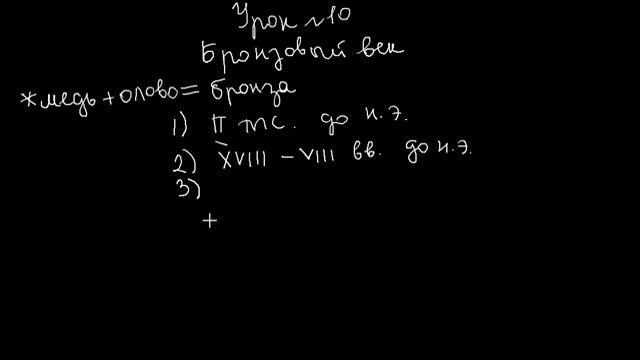 Урок №10
Бронзовый век
*медь + олово = бронза
1) II тыс. до н.э.
2) XVIII - VIII вв. до н.э.
3)
+